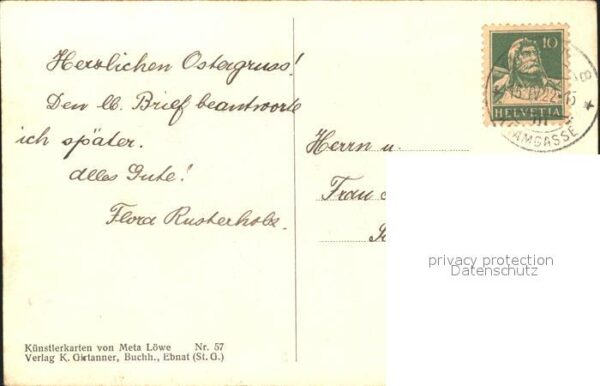 Herzlichen Ostergruss!
Den lb. Brief beantworte
ich später.
Alles Gute!
Flora Rusterholz.
Künstlerkarten von Meta Löwe Nr. 57
Verlag K. Girtanner, Buchh., Ebnat (St. G.)
10
HELVETIA
15.IV.22-15
AMGASSE
Herrn u.
Frau
privacy protection
Datenschutz